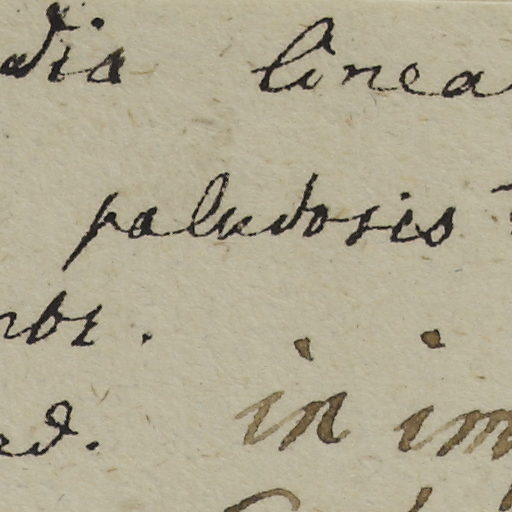 dia linea
paludosis
nbr.
ed. in im